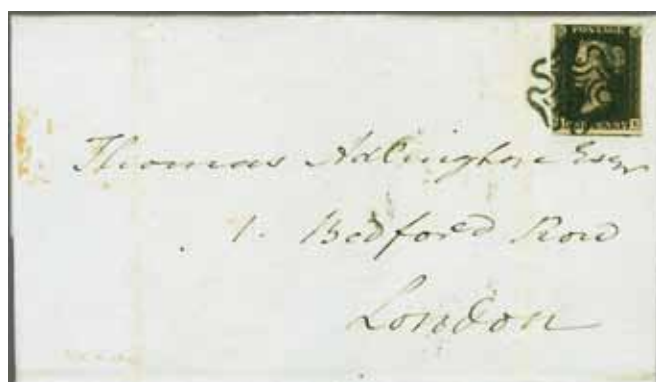 POSTAGE
Thomas Adlington Esqr
1. Bedford Row
London